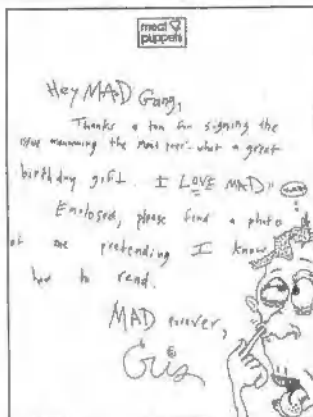 meat
puppets
Hey MAD Gang,
Thanks a ton for signing the
issue the Meat what a great
birthday gift. I LOVE MAD!!
Enclosed, please find a photo
of me pretending I know
how to read.
MAD forever,
Cris